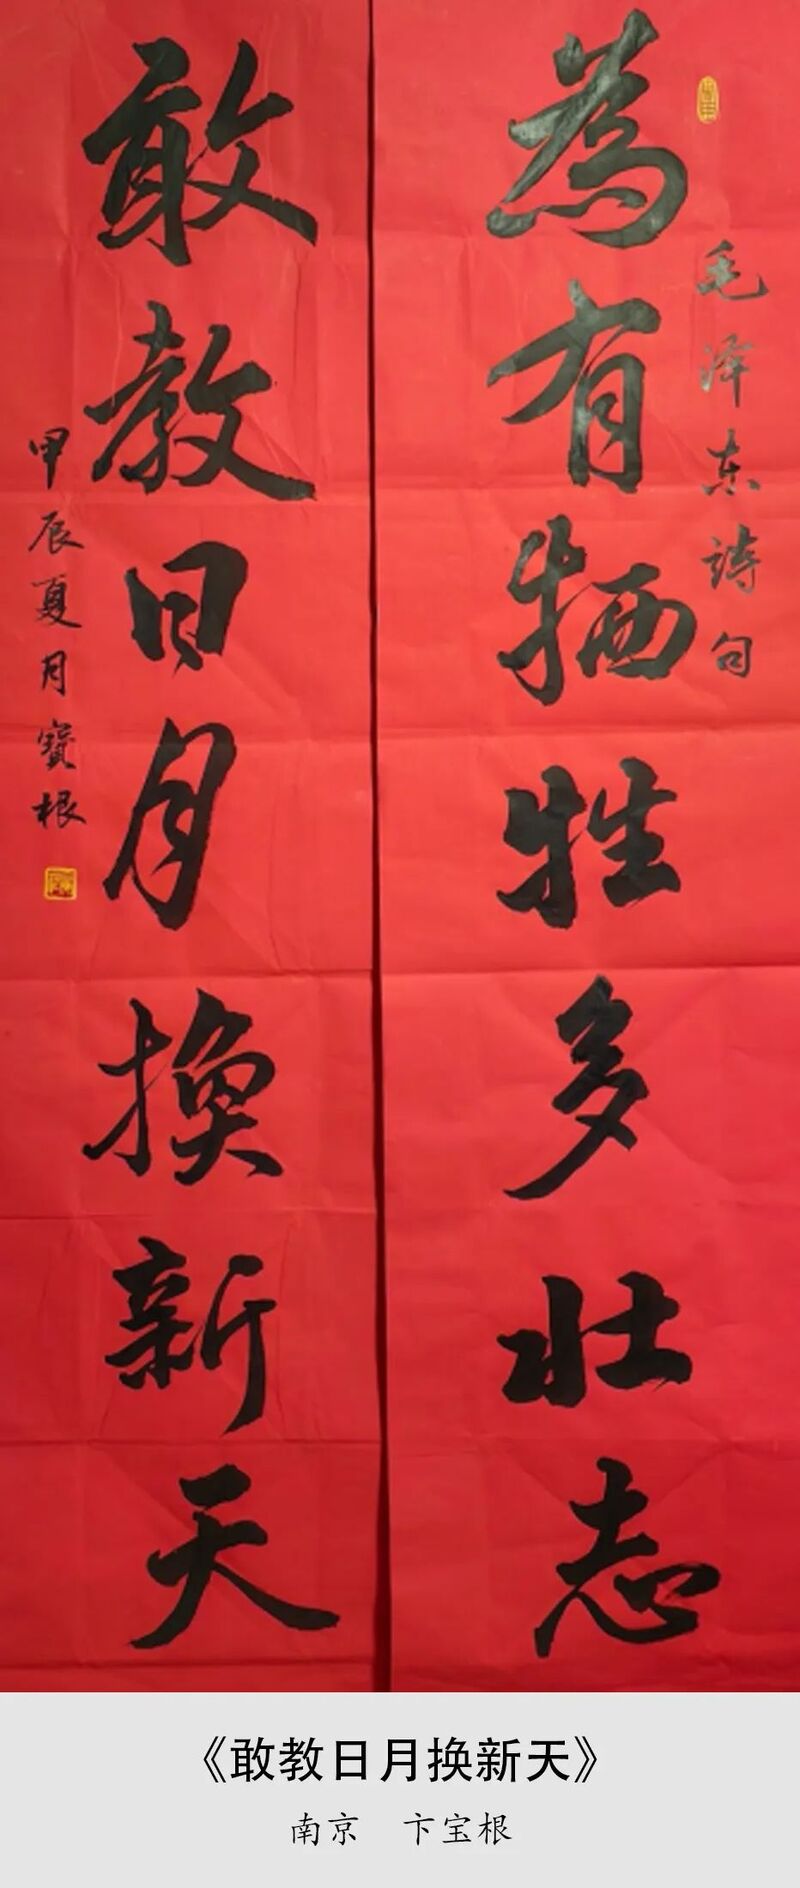 毛泽东詩句
為有牺牲多壮志
敢教日月换新天
甲辰夏月寶根
《敢教日月换新天》
南京　卞宝根